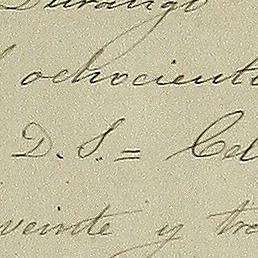 Durango
ochocient
D. S. = Cel
veinte y tre